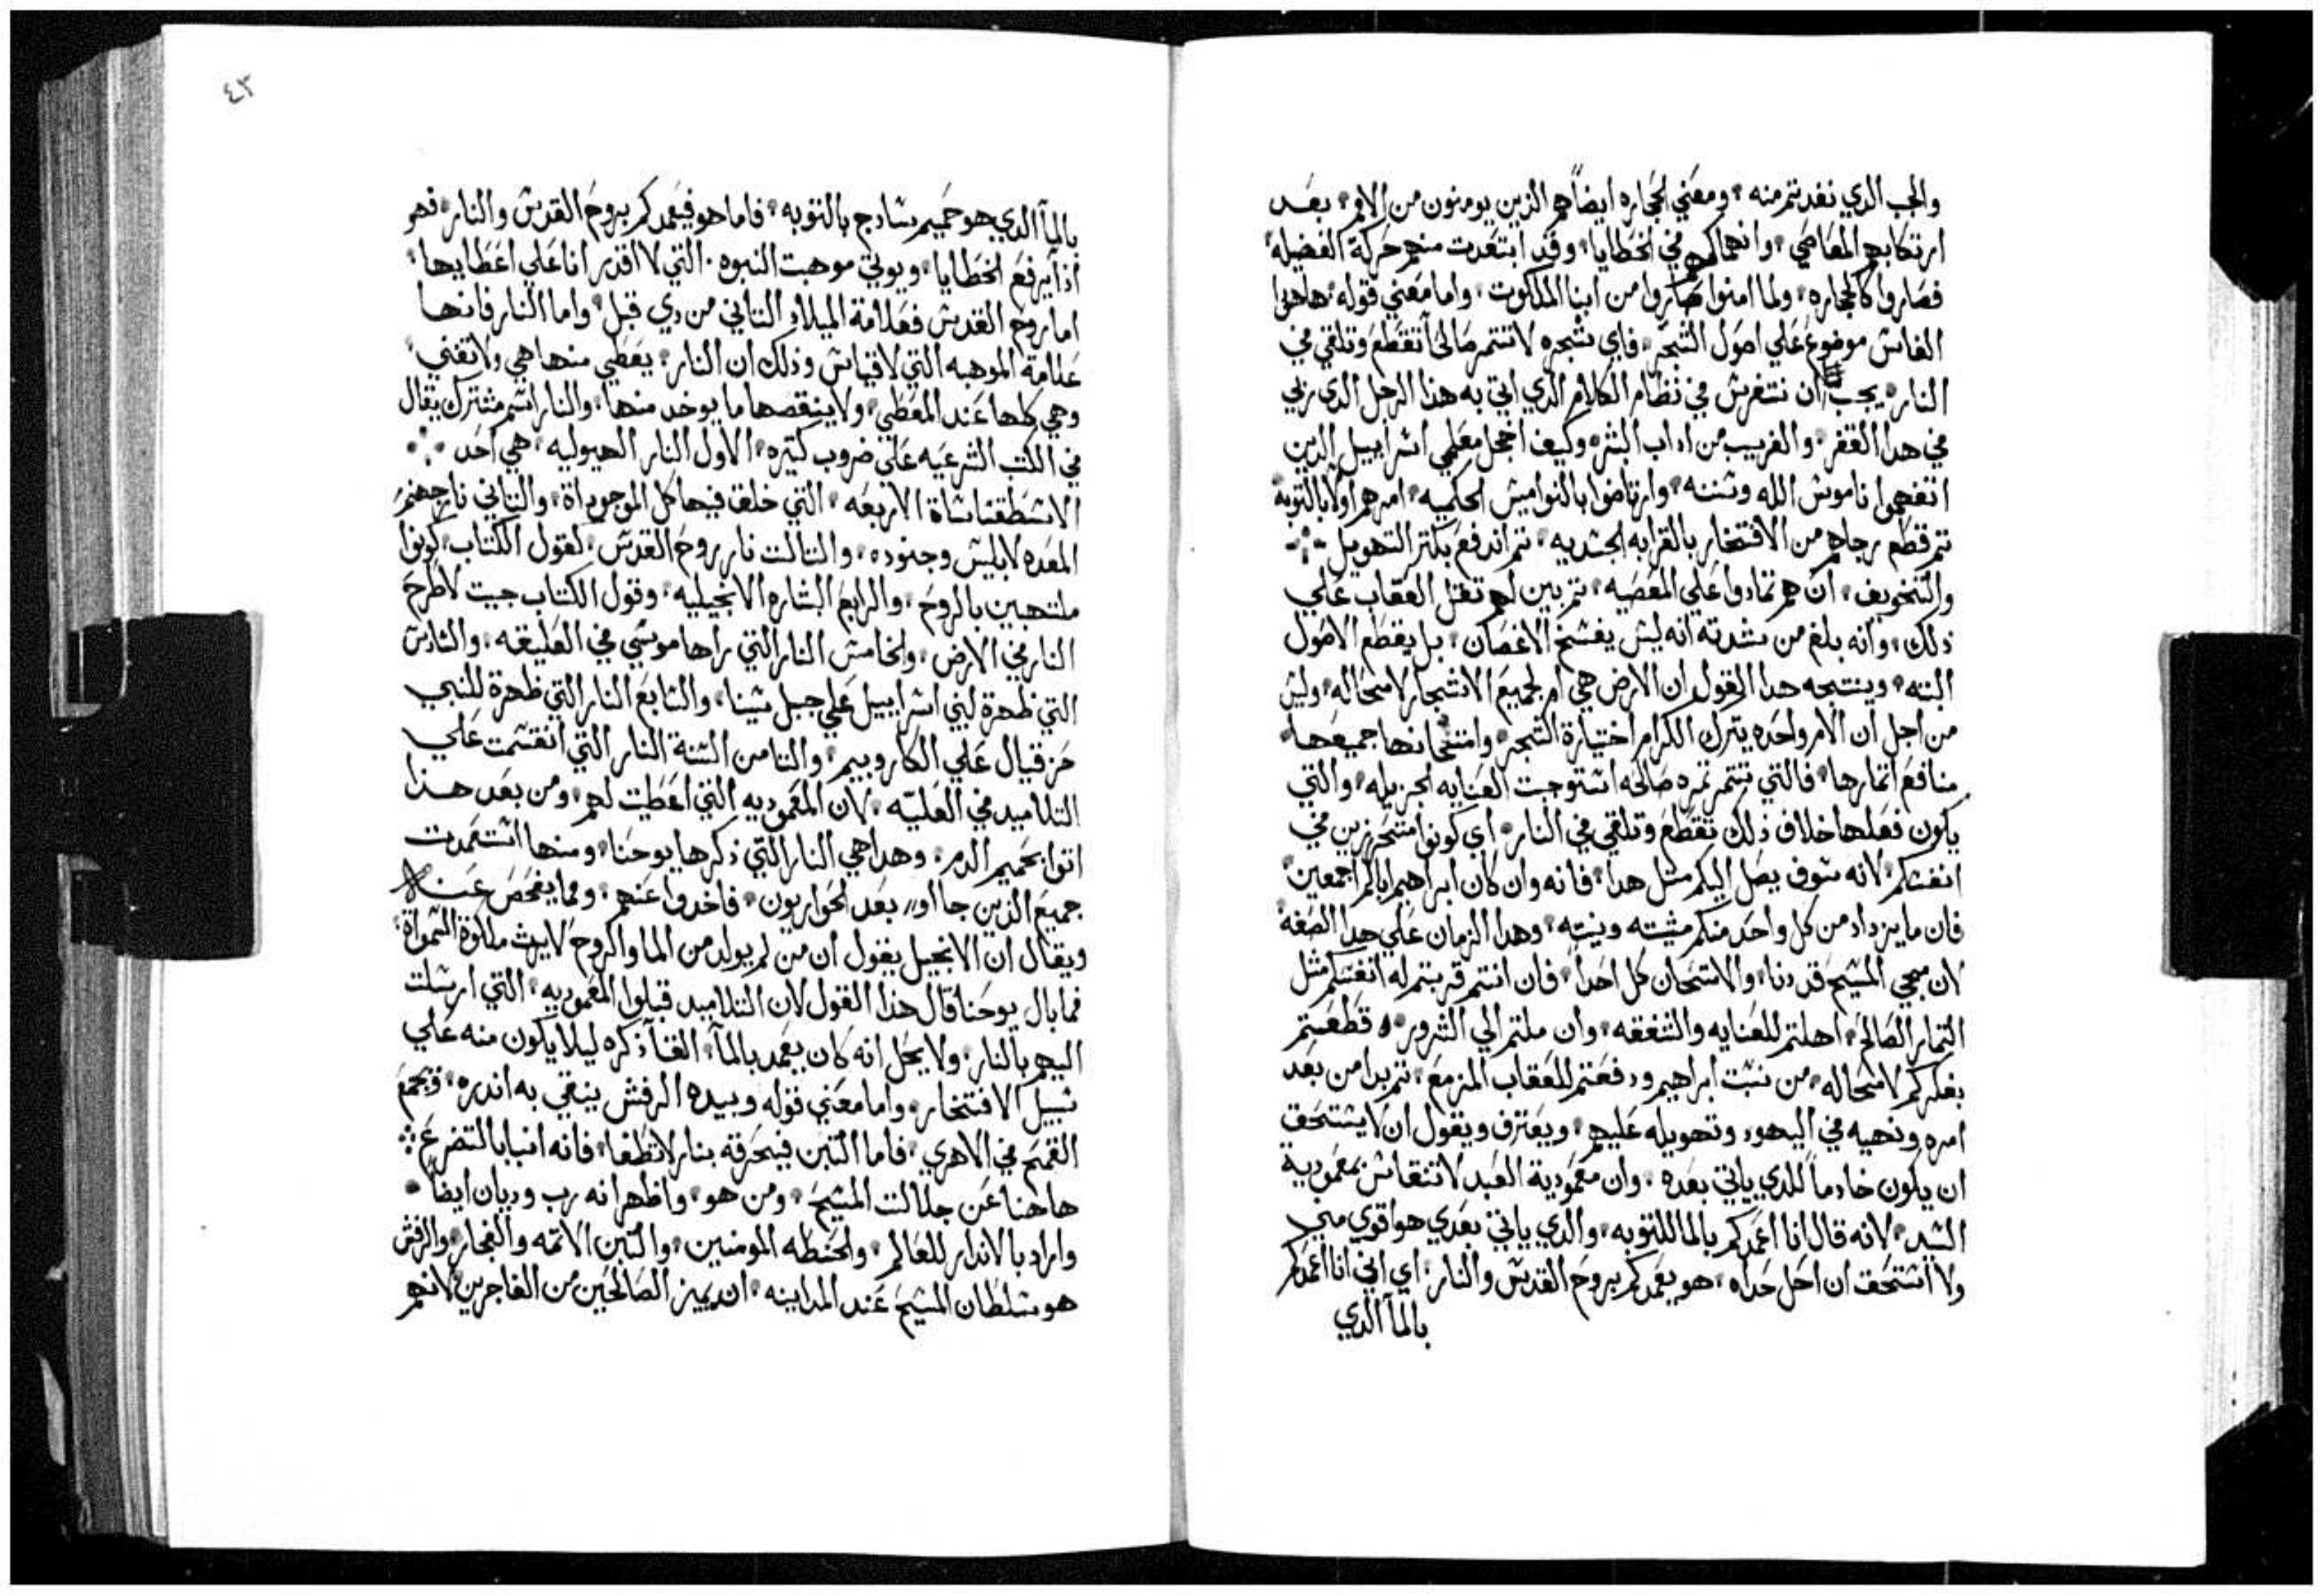 والجب الدي نفدتم منه ومعني الحجاره ايضاً هم الذين يومنون من الامم بعد
ارتكابهم المعاصي وانهماكهم في الخطايا وقد ابتعدت منهم حركة الفضيله
فصاروا كالحجاره ولما امنوا صاروا من ابنا الملكوت واما معني قوله هاهدا
الفاس موضوع علي اصول الشجر فاي شجره لا تتمر صالحاً تقطع وتلقي في
النار يجب ان نتفرس في نظام الكلام الدي اتي به هذا الرجل الدي ربي
في هدا القفر والغريب من اداب البشر وكيف اخجل معلمي اسراييل الدين
اتفهموا ناموس الله وسننه وارتاضوا بالنواميس الحكميه امرهم اولا بالتوبه
تم قطع رجاهم من الافتخار بالقرابه الجسديه تم اندفع بكتر التهويل
والتخويف ان هم تمادوا علي المعصيه تم بين لهم تقل العقاب علي
ذلك وانه بلغ من شدته انه ليس يفسخ الاغصان بل يقطع الاصول
البته وينتجه هدا القول ان الارض هي ام لجميع الاشجار لامحاله وليس
من اجل ان الام واحده يترك الكرام اختيارة الشجر وامتحانها جميعها
منافع اتمارها فالتي تتمر تمره صالحه استوجبت العنايه الجزيله والتي
يكون فعلها خلاف ذلك تقطع وتلقي في النار اي كونوا متحرزين في
انفسكم لانه سوف يصل اليكم متل هدا فانه وان كان ابراهيم اباكم اجمعين
فان مايزداد من كل واحد منكم مشيته ونيته وهدا الزمان علي هدا الصفه
لان مجي المسيح قد دنا والامتحان كل احداً فان انتم قربتم له انفسكم متل
التمار الصالح اهلتم للعنايه والشفقه وان ملتم الي الشرور قطعتم
بفكركم لامحاله من نسبت ابراهيم ودفعتم للعقاب المزمع تم بدا من بعد
امره ونهيه في اليهود وتهويله عليهم ويعترف ويقول ان لا يستحق
ان يكون خادماً للدي ياتي بعده وان معمودية العبد لا تنقاس بمعمودية
السيد لانه قال انا اعمدكم بالما للتوبه والدي ياتي بعدي هو اقوي مني
ولا استحق ان احل حداه هو يعمدكم بروح القدس والنار اي اني انا اعمدكم
بالمآ الدي
٤٣
بالمآ الدي هو حميم سادج بالتوبه فاما هو فيعمدكم بروح القدس والنار فهو
اذاً يرفع الخطايا ويوتي موهبت النبوه التي لا اقدر انا علي اعطايها
اما روح القدس فعلامة الميلاد التاني من دي قبل واما النار فانها
علامة الموهبه التي لا قياس وذلك ان النار يعطي منها هي ولا تفني
وهي كلها عند المعطي ولا ينقصها ما يوخد منها والنار اسم مشترك يقال
في الكتب الشرعيه علي ضروب كتيره الاول النار الهيوليه هي احد
الاسطقسات الاربعه التي خلق فيها كل الموجوداة والتاني نار جهنم
المعده لابليس وجنوده والتالت نار روح القدس كقول الكتاب كونوا
ملتهبين بالروح والرابع البشاره الانجيليه وقول الكتاب جيت لاطرح
النار في الارض والخامس النار التي راها موسي في العليقه والسادس
التي ظهرة لبني اسراييل علي جبل سينا والسابع النار التي ظهرة للنبي
حزقيال علي الكاروبيم والتامن السنة النار التي انقسمت علي
التلاميد في العليه لان المعموديه التي اعطيت لهم ومن بعد هدا
اتوا بحميم الدم وهدا هي النار التي ذكرها يوحنا ومنها استمدت
جميع الذين جااوا بعد الحواريون فاخدوا عنهم ومما يفحص عنه
ويقال ان الانجيل يقول ان من لم يولد من الما والروح لا يرث ملكوة السمواة
فما بال يوحنا قال هدا القول لان التلاميد قبلوا المعموديه التي ارسلت
اليهم بالنار ولا يحل انه كان يعمد بالمآ القآ ذكره ليلا يكون منه علي
سبيل الافتخار واما معني قوله وبيده الرفش ينقي به اندره فيجمع
القمح في الاهري فاما التبن فيحرقه بنار لا تطفا فانه انبا بالتضرع
هاهنا عن جلالت المسيح ومن هو واظهر انه رب وديان ايضاً
واراد بالاندر للعالم والحنطه المومنين والتبن الاتمه والفجار والرفش
هو سلطان المسيح عند المداينه ان يميز الصالحين من الفاجرين لانهم